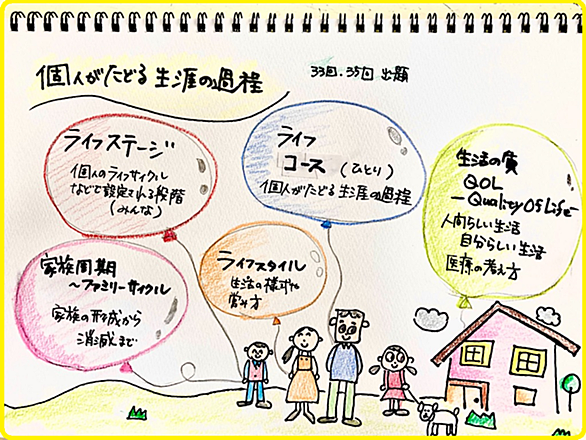 個人がたどる生涯の過程
33回.35回 出題
ライフステージ
個人のライフサイクル
などで設定される段階
(みんな)
ライフ
コース (ひとり)
個人がたどる生涯の過程
生活の質
QOL
ーQuality Of Lifeー
人間らしい生活
自分らしい生活
医療の考え方
家族周期
〜ファミリーサイクル
家族の形成から
消滅まで
ライフスタイル
生活の様式や
営み方